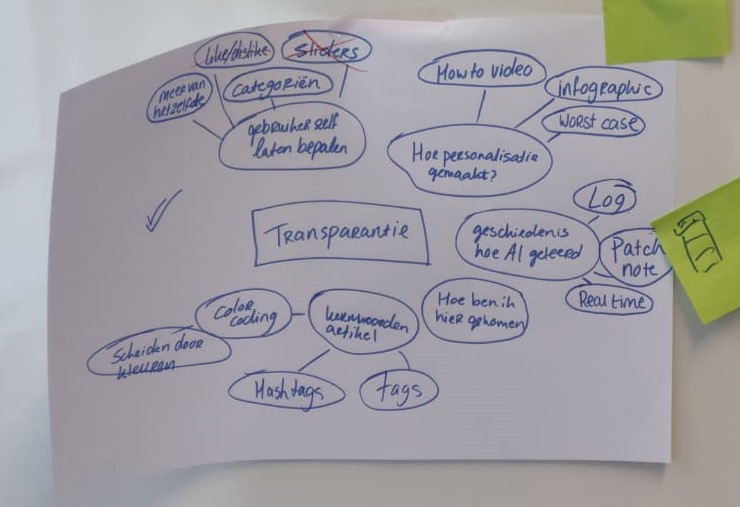 Like/dislike
Sliders
Meer van
hetzelfde
Categoriën
gebruiker zelf
laten bepalen
How to video
infographic
Worst case
Hoe personalisatie
gemaakt?
Transparantie
Log
geschiedenis
hoe AI geleerd
Patch
note
Realtime
Color
coding
Scheiden door
kleuren
kernwoorden
artikel
Hoe ben ik
hier gekomen
Hashtags
tags